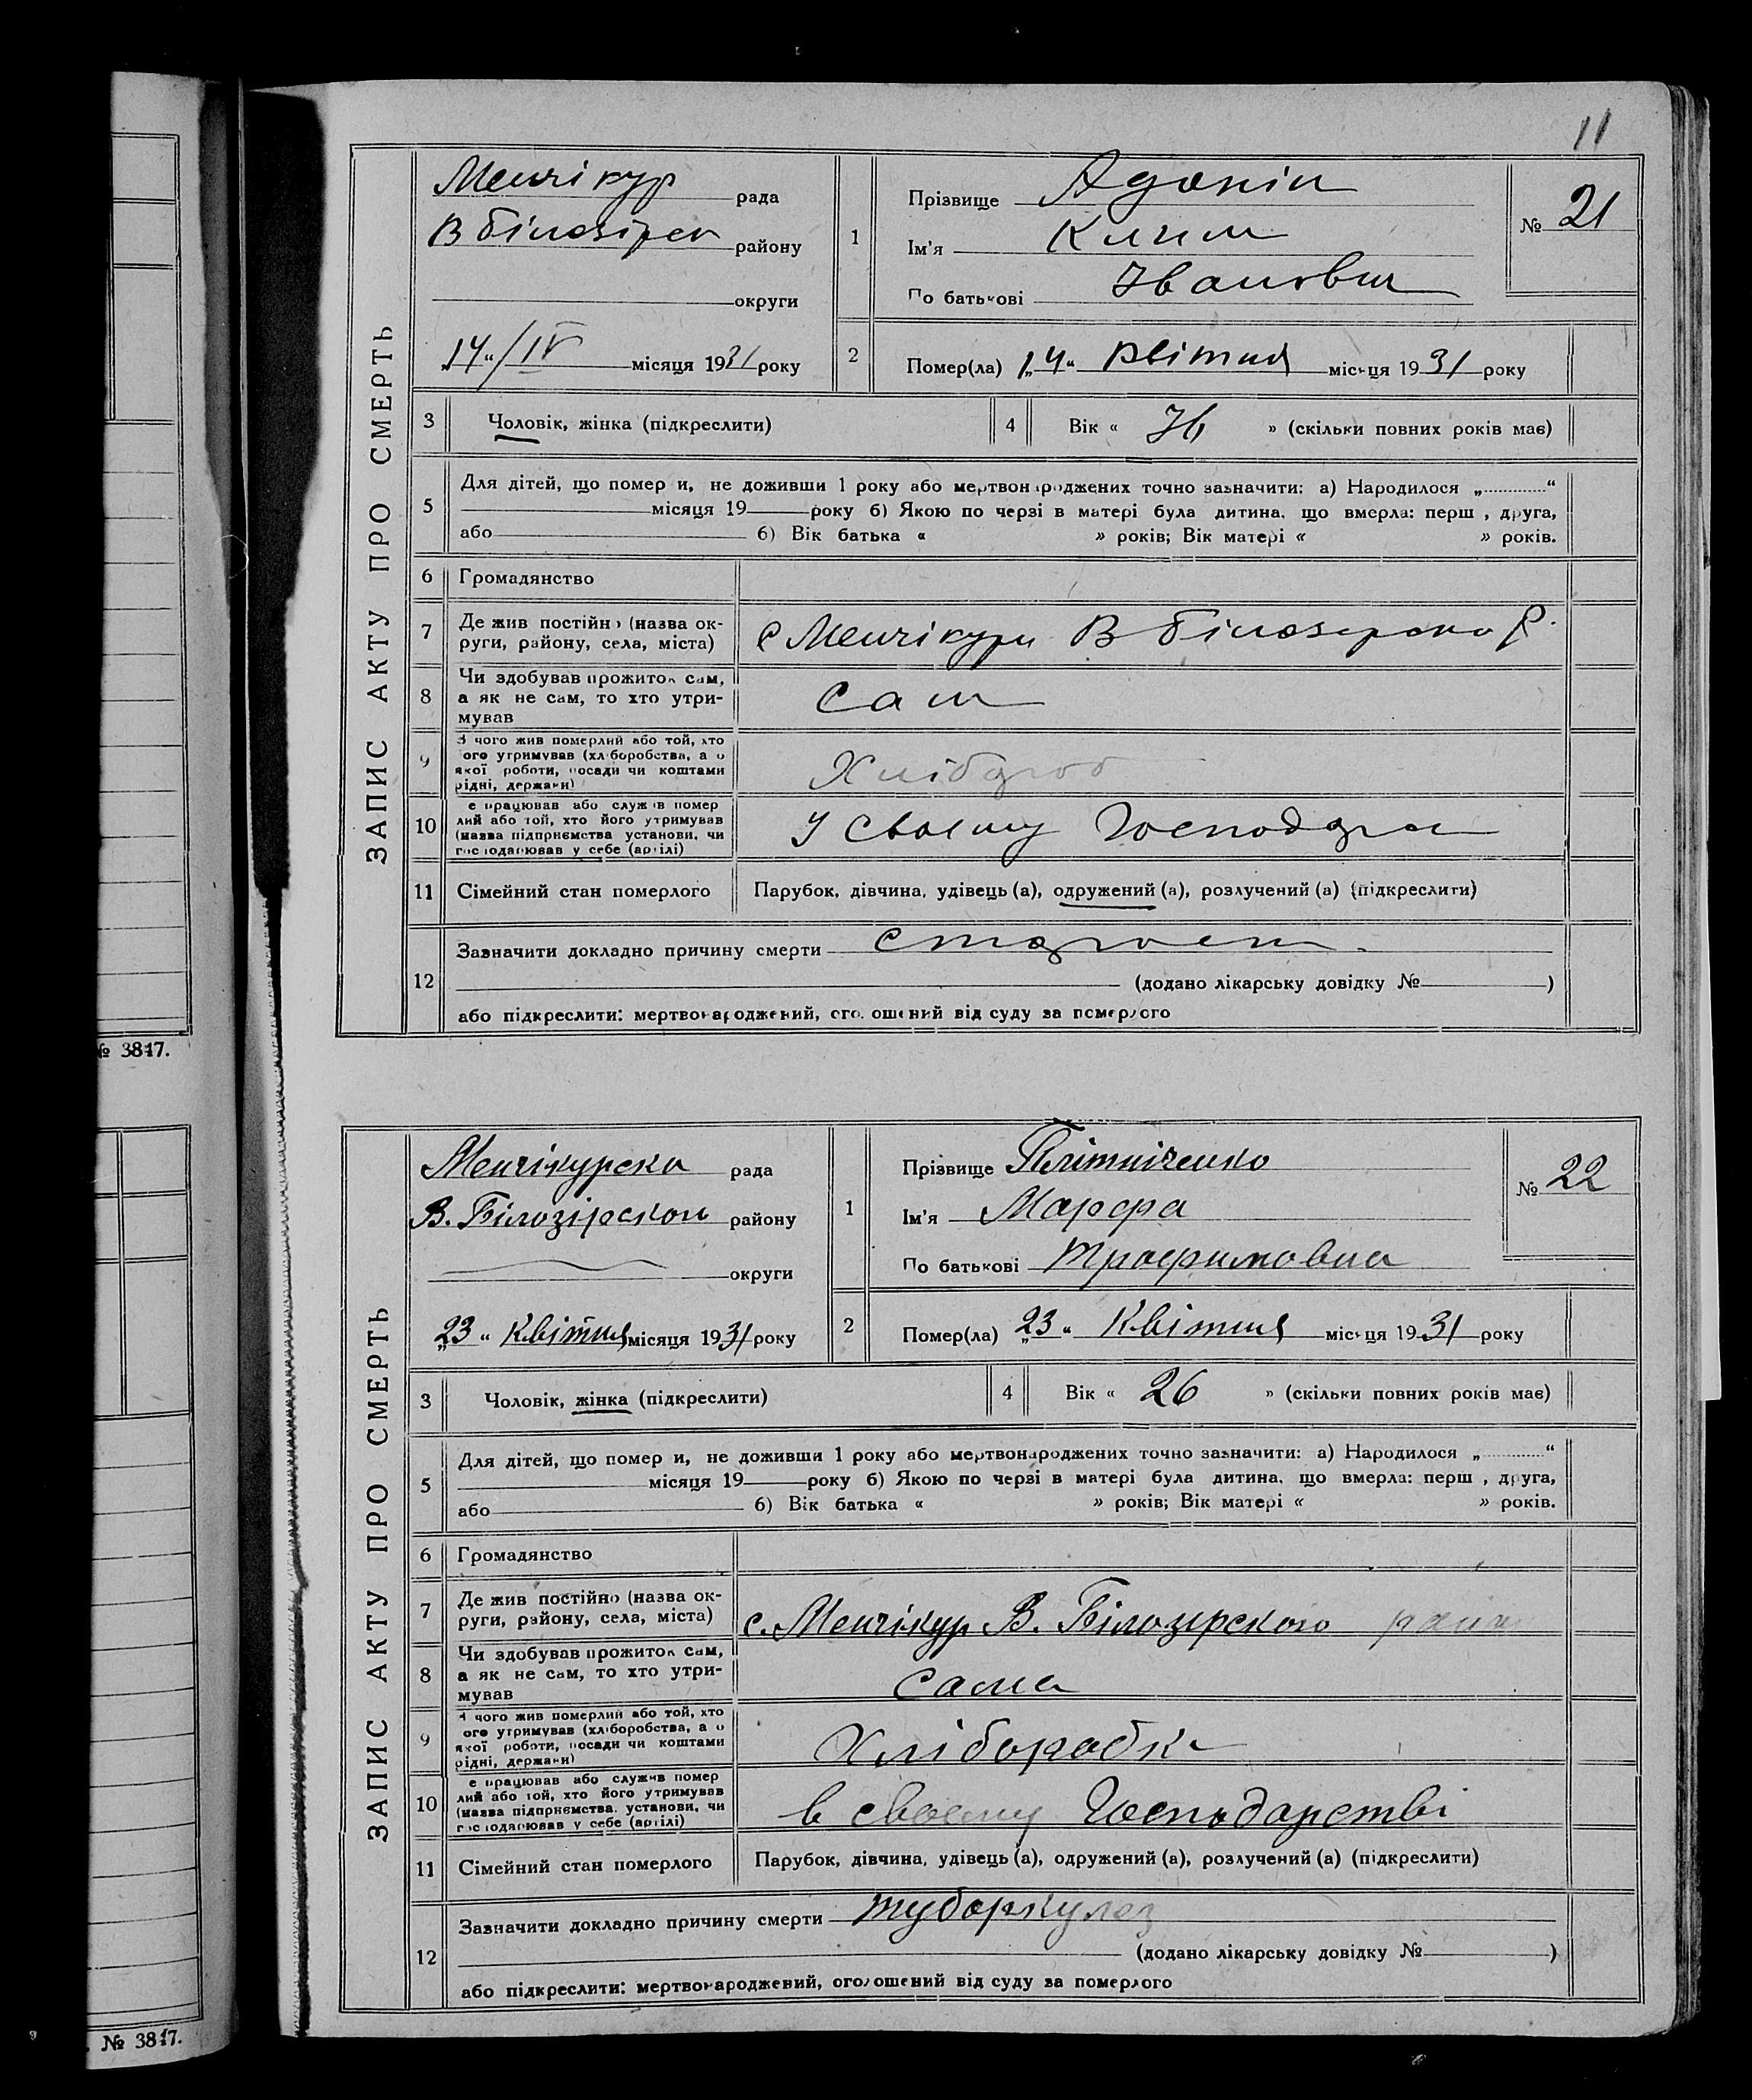 11
ЗАПИС АКТУ ПРО СМЕРТЬ
Менчікур рада
В Білозірсн району
округи
„14“/IV місяця 1931 року
1
Прізвище Адонін
Ім'я Клим
По батькові Іванович
№ 21
2
Помер(ла) „14“ квітня місяця 1931 року
3 Чоловік, жінка (підкреслити)
4 Вік « 76 » (скільки повних років має)
5 Для дітей, що померли, не доживши 1 року або мертвонароджених точно зазначити: а) Народилося „ “
місяця 19 року б) Якою по черзі в матері була дитина, що вмерла: перш , друга,
або б) Вік батька « » років; Вік матері « » років.
6 Громадянство
7 Де жив постійно (назва ок-
руги, району, села, міста)
с Менчікури В Білозерсько Р.
8 Чи здобував прожиток сам,
а як не сам, то хто утри-
мував
сам
9 З чого жив померлий або той, хто
ого утримував (хліборобства, а о
якої роботи, посади чи коштами
рідні, держави)
Хлібороб
10 е працював або служив помер
лий або той, хто його утримував
(назва підприємства установи, чи
господарював у себе (артілі)
У своєму Господар
11 Сімейний стан померлого
Парубок, дівчина, удівець (а), одружений (а), розлучений (а) (підкреслити)
12 Зазначити докладно причину смерти старост
(додано лікарську довідку № )
або підкреслити: мертвонароджений, оголошений від суду за померлого
№ 3817.
ЗАПИС АКТУ ПРО СМЕРТЬ
Менчікурска рада
В. Білозірском району
округи
„23“ Квітня місяця 1931 року
1
Прізвище Плітніченко
Ім'я Марфа
По батькові Трофимовна
№ 22
2
Помер(ла) „23“ Квітня місяця 1931 року
3 Чоловік, жінка (підкреслити)
4 Вік « 26 » (скільки повних років має)
5 Для дітей, що померли, не доживши 1 року або мертвонароджених точно зазначити: а) Народилося „ “
місяця 19 року б) Якою по черзі в матері була дитина, що вмерла: перш , друга,
або б) Вік батька « » років; Вік матері « » років.
6 Громадянство
7 Де жив постійно (назва ок-
руги, району, села, міста)
с. Менчікур В. Білозірского район
8 Чи здобував прожиток сам,
а як не сам, то хто утри-
мував
сама
9 З чого жив померлий або той, хто
ого утримував (хліборобства, а о
якої роботи, посади чи коштами
рідні, держави)
Хліборобка
10 е працював або служив помер
лий або той, хто його утримував
(назва підприємства, установи, чи
господарював у себе (артілі)
в своєму Господарстві
11 Сімейний стан померлого
Парубок, дівчина, удівець (а), одружений (а), розлучений (а) (підкреслити)
12 Зазначити докладно причину смерти туборкулоз
(додано лікарську довідку № )
або підкреслити: мертвонароджений, оголошений від суду за померлого
№ 3817.